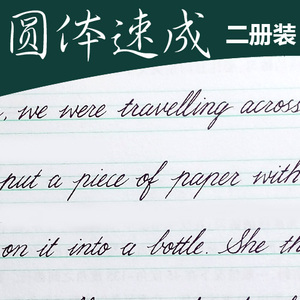 圆体速成 二册装
, we were travelling across
put a piece of paper with
on it into a bottle. She th